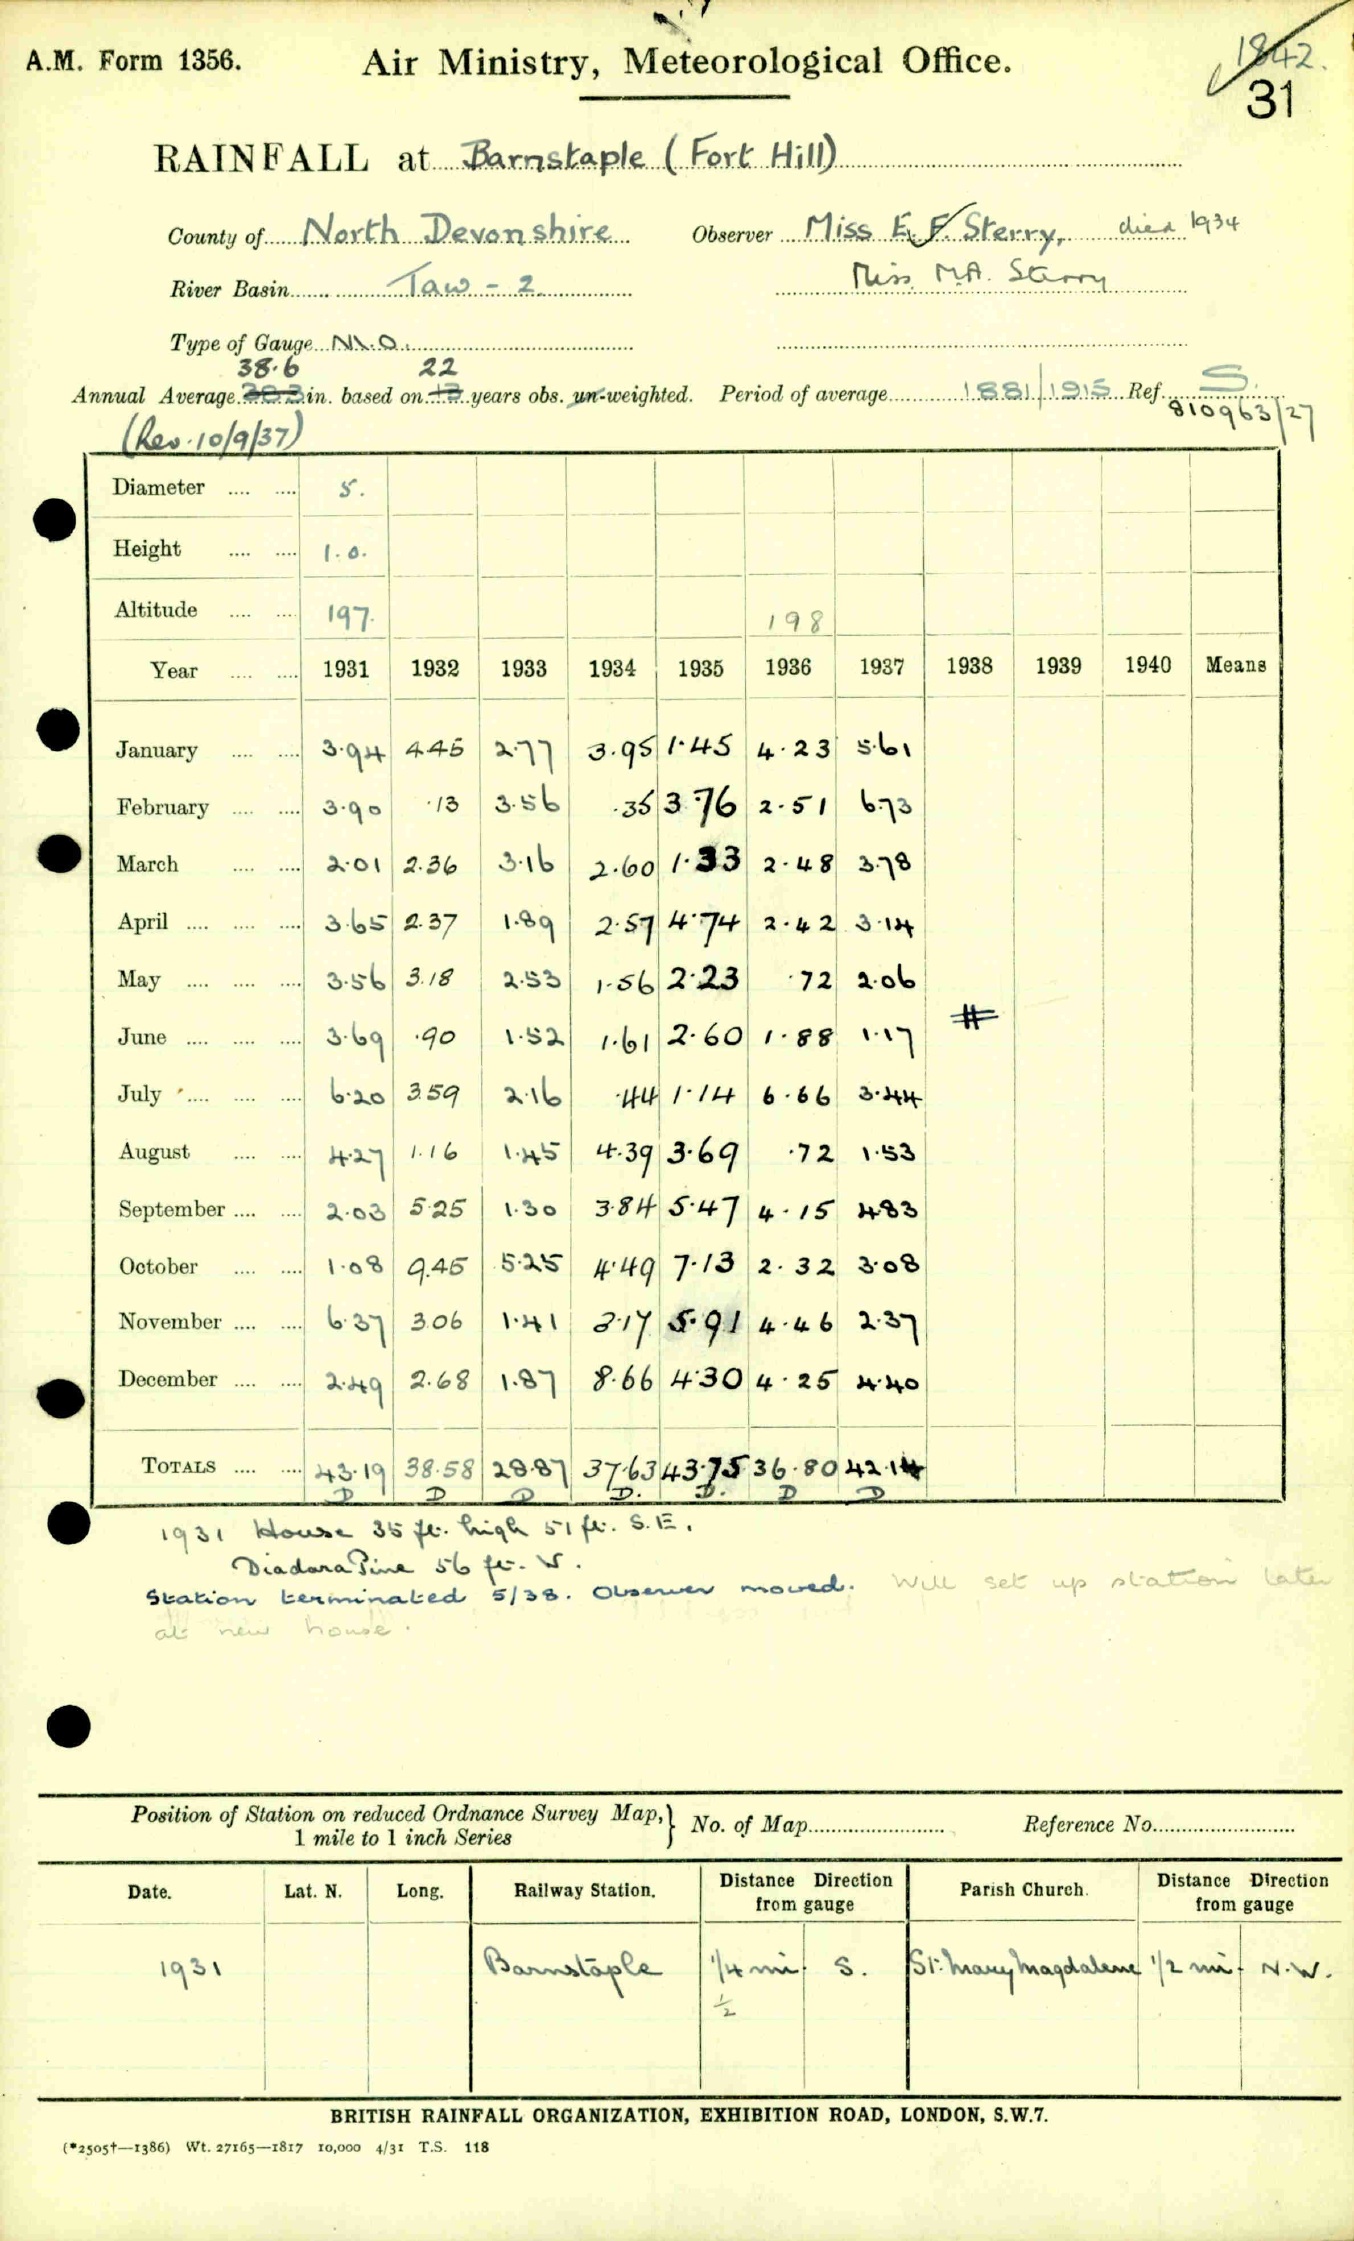 A.M. Form 1356.
Air Ministry, Meteorological Office.
1842.
31
RAINFALL at Barnstaple (Fort Hill)
County of North Devonshire Observer Miss E. F. Sterry, died 1934
River Basin Taw - 2 Miss M.A. Sterry
Type of Gauge M.O.
38.6 22
Annual Average in. based on 13 years obs. un-weighted. Period of average 1881/1915 Ref. S.
810963/27
(Rev. 10/9/37)
Diameter .... .... 5.
Height .... .... 1.0.
Altitude .... .... 197. 198
Year .... .... 1931 1932 1933 1934 1935 1936 1937 1938 1939 1940 Means
January .... .... 3.94 4.45 2.77 3.95 1.45 4.23 5.61
February .... .... 3.90 .13 3.56 .35 3.76 2.51 6.73
March .... .... 2.01 2.36 3.16 2.60 1.33 2.48 3.78
April .... .... .... 3.65 2.37 1.89 2.57 4.74 2.42 3.14
May .... .... .... 3.56 3.18 2.53 1.56 2.23 .72 2.06
June .... .... .... 3.69 .90 1.52 1.61 2.60 1.88 1.17 #
July .... .... .... 6.20 3.59 2.16 .44 1.14 6.66 3.44
August .... .... 4.27 1.16 1.45 4.39 3.69 .72 1.53
September .... .... 2.03 5.25 1.30 3.84 5.47 4.15 4.83
October .... .... 1.08 9.45 5.25 4.49 7.13 2.32 3.08
November .... .... 6.37 3.06 1.41 3.17 5.91 4.46 2.37
December .... .... 2.49 2.68 1.87 8.66 4.30 4.25 4.40
TOTALS .... .... 43.19 38.58 28.87 37.63 43.75 36.80 42.14
D D D D. D. D D
1931 House 35 ft. high 51 ft. S.E.
Diadora Pine 56 ft. W.
Station terminated 5/38. Observer moved. Will set up station later
at new house.
Position of Station on reduced Ordnance Survey Map, 1 mile to 1 inch Series } No. of Map Reference No.
Date. Lat. N. Long. Railway Station. Distance Direction from gauge Parish Church. Distance Direction from gauge
1931 Barnstaple 1/4 mi. S. St. Mary Magdalene 1/2 mi. N.W.
1/2
BRITISH RAINFALL ORGANIZATION, EXHIBITION ROAD, LONDON, S.W.7.
(*2505†—1386) Wt. 27165—1817 10,000 4/31 T.S. 118